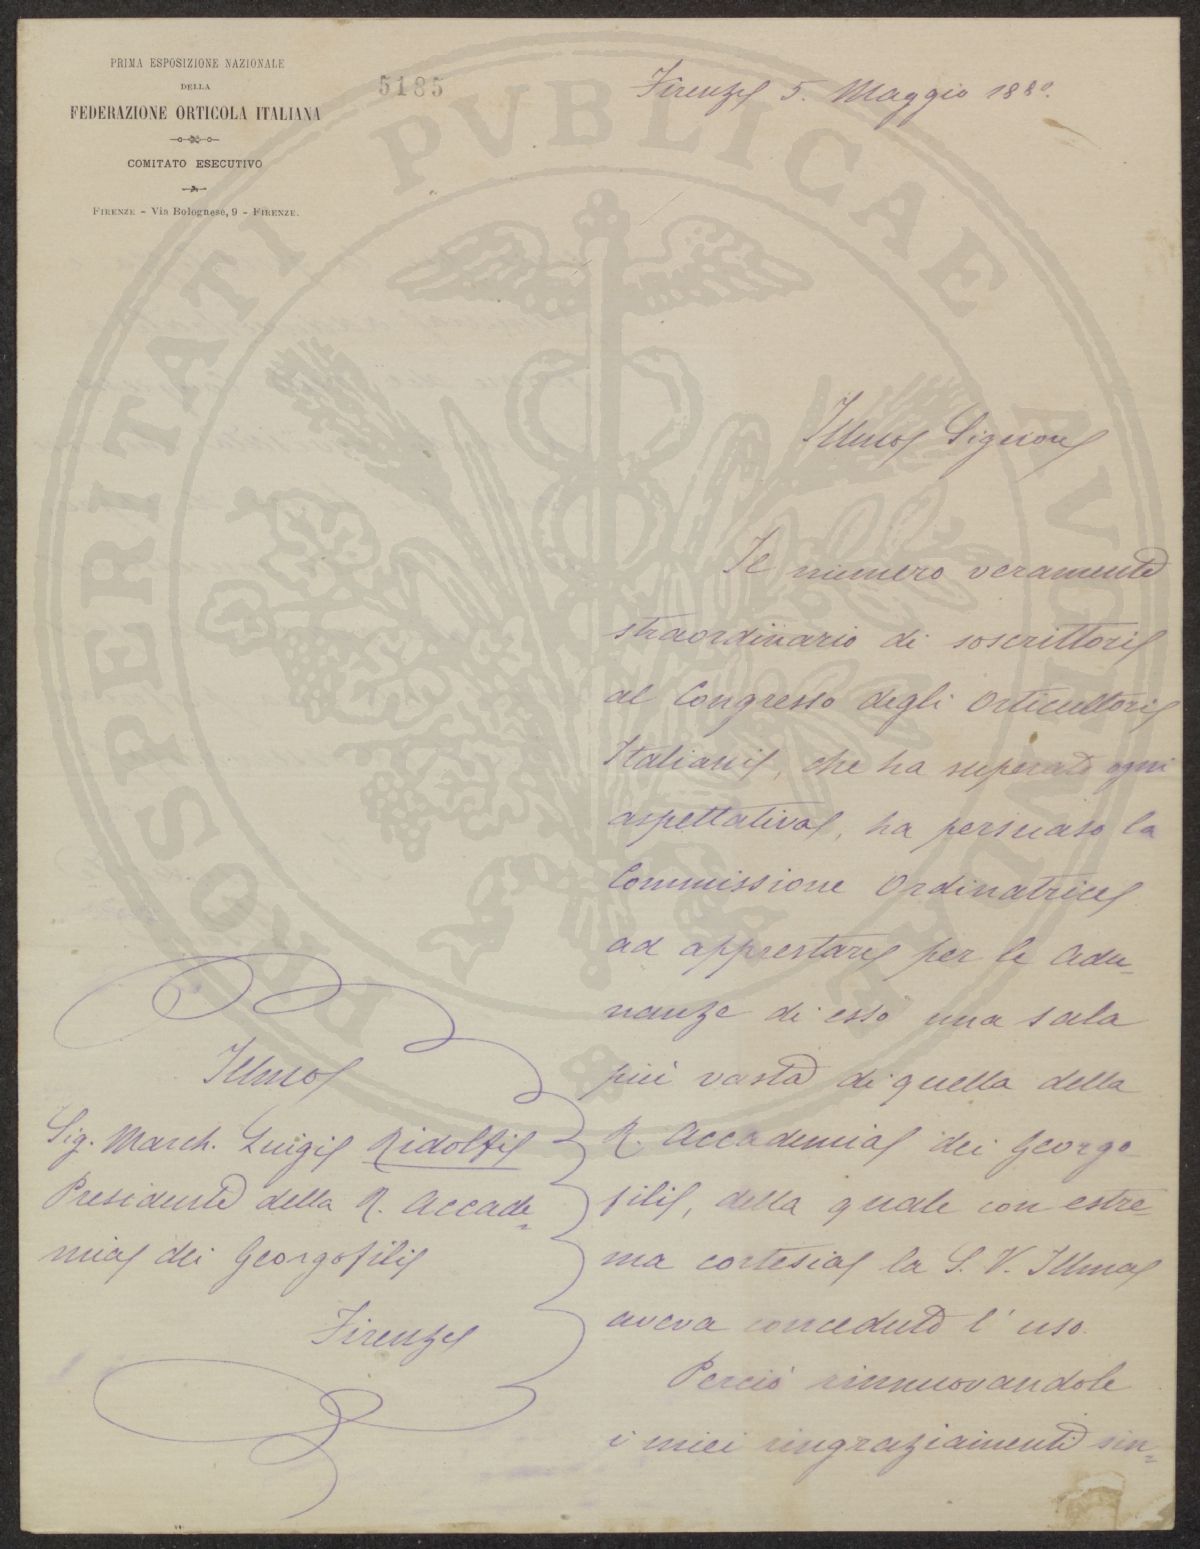 PRIMA ESPOSIZIONE NAZIONALE
DELLA
FEDERAZIONE ORTICOLA ITALIANA
COMITATO ESECUTIVO
FIRENZE - Via Bolognese, 9 - FIRENZE.
5185
Firenze 5. Maggio 1880.
Illmo Signore
Il numero veramente
straordinario di soscrittori
al Congresso degli Orticultori
Italiani, che ha superato ogni
aspettativa, ha persuaso la
Commissione Ordinatrice
ad apprestare per le adu=
nanze di esso una sala
più vasta di quella della
R. Accademia dei Georgo
fili, della quale con estre=
ma cortesia la S. V. Illma
aveva conceduto l'uso.
Perciò rinnuovandole
i miei ringraziamenti sin=
Illmo
Sig. March. Luigi Ridolfi
Presidente della R. Accade=
mia dei Georgofili
Firenze
PROSPERITATI PVBLICAE AVGENDAE